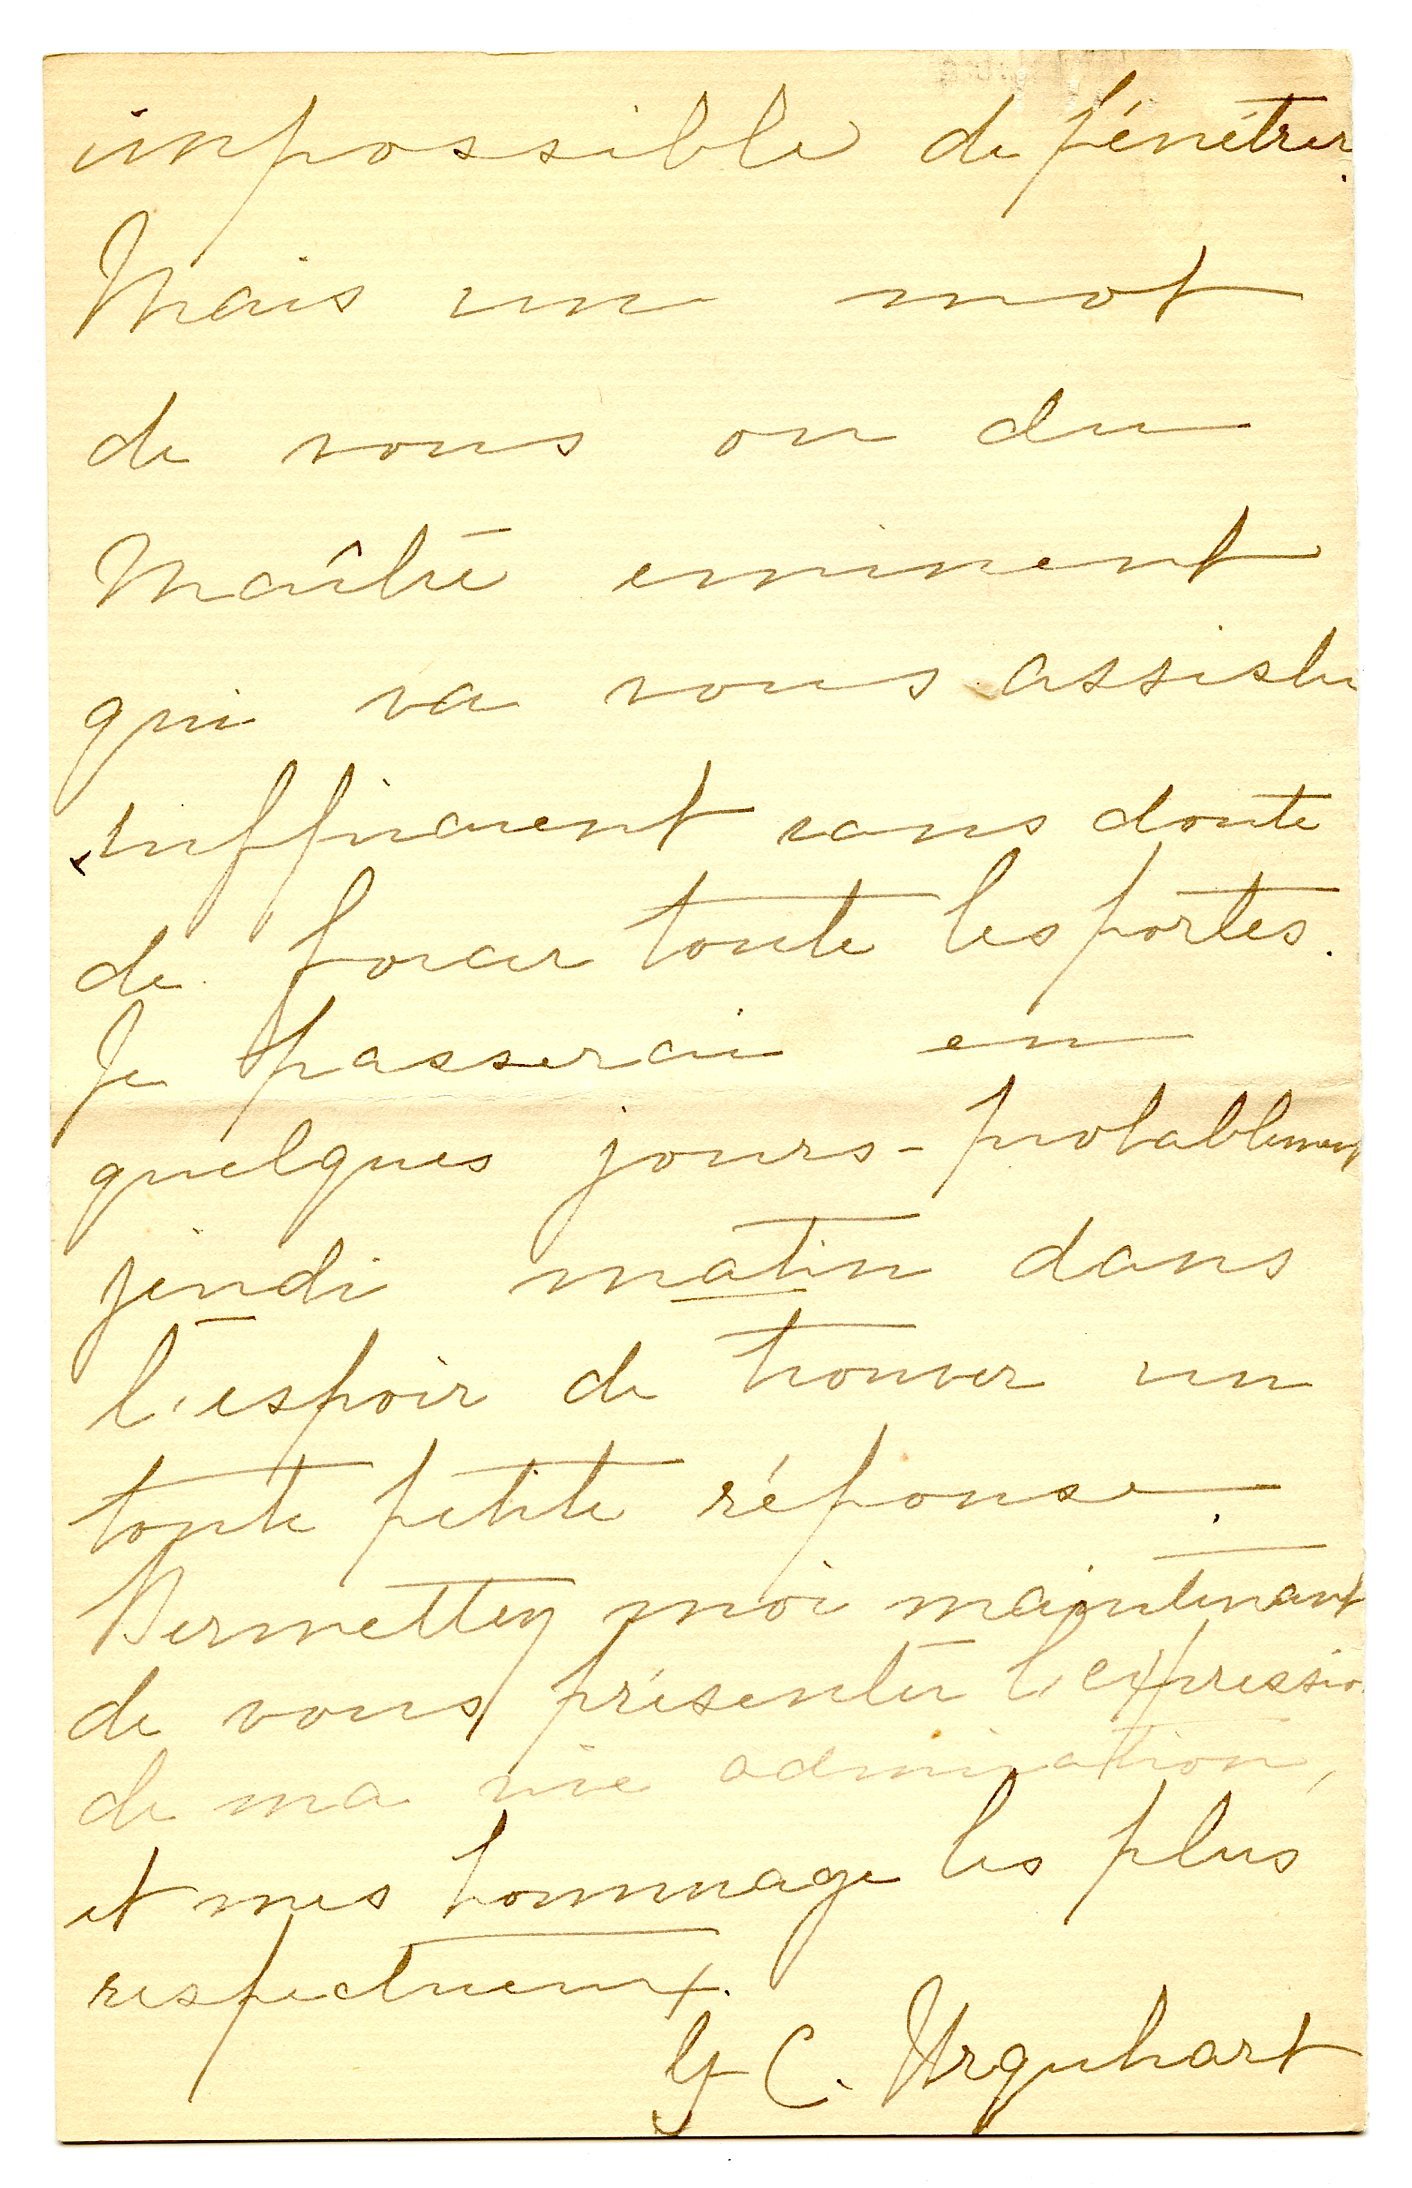 impossible de pénétrer.
Mais un mot
de vous ou du
Maître eminent
qui va vous assister
suffiraient sans doute
de forcer toute les portes.
Je passerai en
quelques jours - probablement
jeudi matin dans
l'éspoir de trouver un
toute petite réponse.
Permettez moi maintenant
de vous présenter l'expression
de ma vive admiration,
et mes hommage les plus
respectueux.
G C. Urquhart